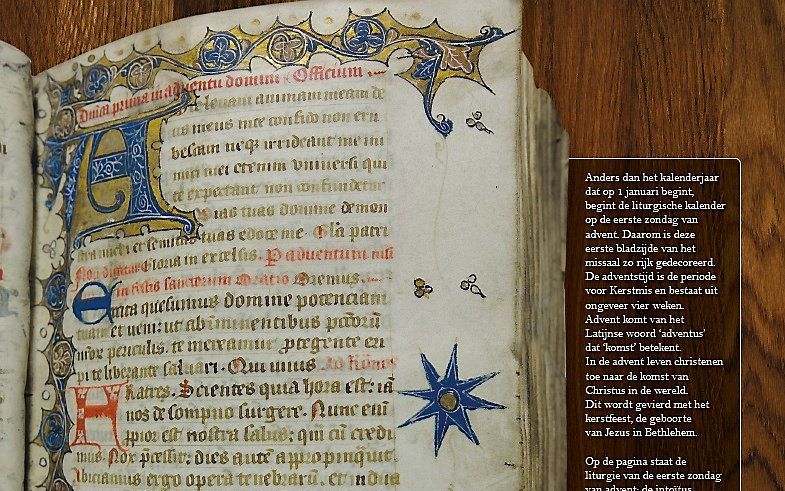 Anders dan het kalenderjaar
dat op 1 januari begint,
begint de liturgische kalender
op de eerste zondag van
advent. Daarom is deze
eerste bladzijde van het
missaal zo rijk gedecoreerd.
De adventstijd is de periode
voor Kerstmis en bestaat uit
ongeveer vier weken.
Advent komt van het
Latijnse woord 'adventus'
dat 'komst' betekent.
In de advent leven christenen
toe naar de komst van
Christus in de wereld.
Dit wordt gevierd met het
kerstfeest, de geboorte
van Jezus in Bethlehem.
Op de pagina staat de
liturgie van de eerste zondag
van advent: de introïtus
prima in adventu domini Officium
levavi animam meam de
us meus in te confido non eru
bescam neq irrideant me ini
mici mei etenim universi qui
te expectant non confundetur
Vias tuas domine demon
stra michi et semitas tuas edoce me Gla patri
Non dicitur Gloria in excelsis
in festis sanctorum Oratio Oremus
Excita quesumus domine potenciam
tuam et veni: ut ab iminentibus pctorū
periculis te mereamur ptegente eri
pi te liberante salvari. Qui vivis
Fratres. Scientes quia hora est: iā
nos de sompno surgere. Nunc eni
ppior est nostra salus; qui cū credi
mus. Nox pcessit; dies autē appropinquit
Abiciamus ergo opera tenebrarū, et indua